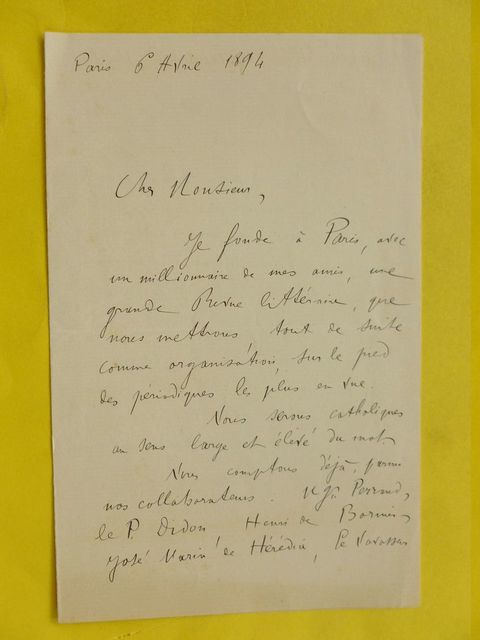 Paris 6 Avril 1894
Cher Monsieur,
Je fonde à Paris, avec
un millionnaire de mes amis, une
grande Revue littéraire, que
nous mettrons, tout de suite
comme organisation, sur le pied
des périodiques les plus en vue.
Nous serons catholiques
au sens large et élevé du mot
Nous comptons déjà, parmi
nos collaborateurs. Mgr Perraud,
le P. Didon, Henri de Bornier,
José Maria de Hérédia, Le Vavasseur